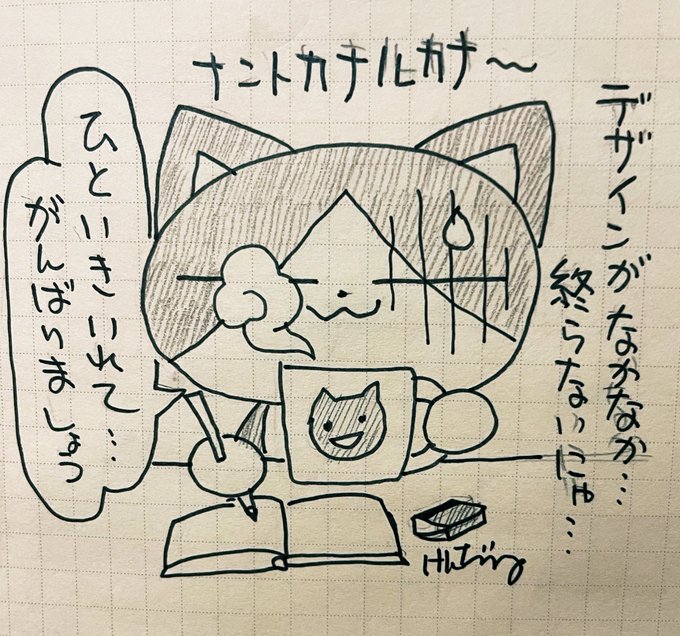 ナントカナルカナ〜
デザインがなかなか…
終らないにゃ…
ひといきいれて…
がんばりましょう